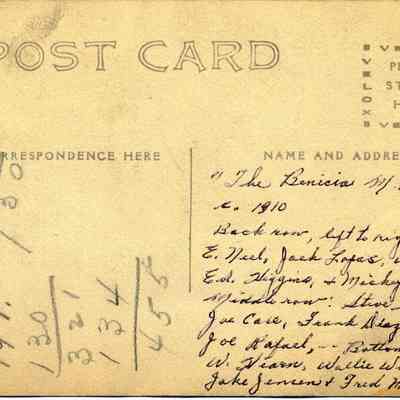 POST CARD
VELOX
CORRESPONDENCE HERE
NAME AND ADDRE
"The Benicia M.
c. 1910
Back row, left to rig
E. Neil, Jack Lopas,
Ed. Higgins, & Mickey
Middle row: Steve
Joe Case, Frank Diaz
Joe Rafael, -- Bottom
W. Hearn, Wallie W
Jake Jensen & Fred M
130
321
134
455